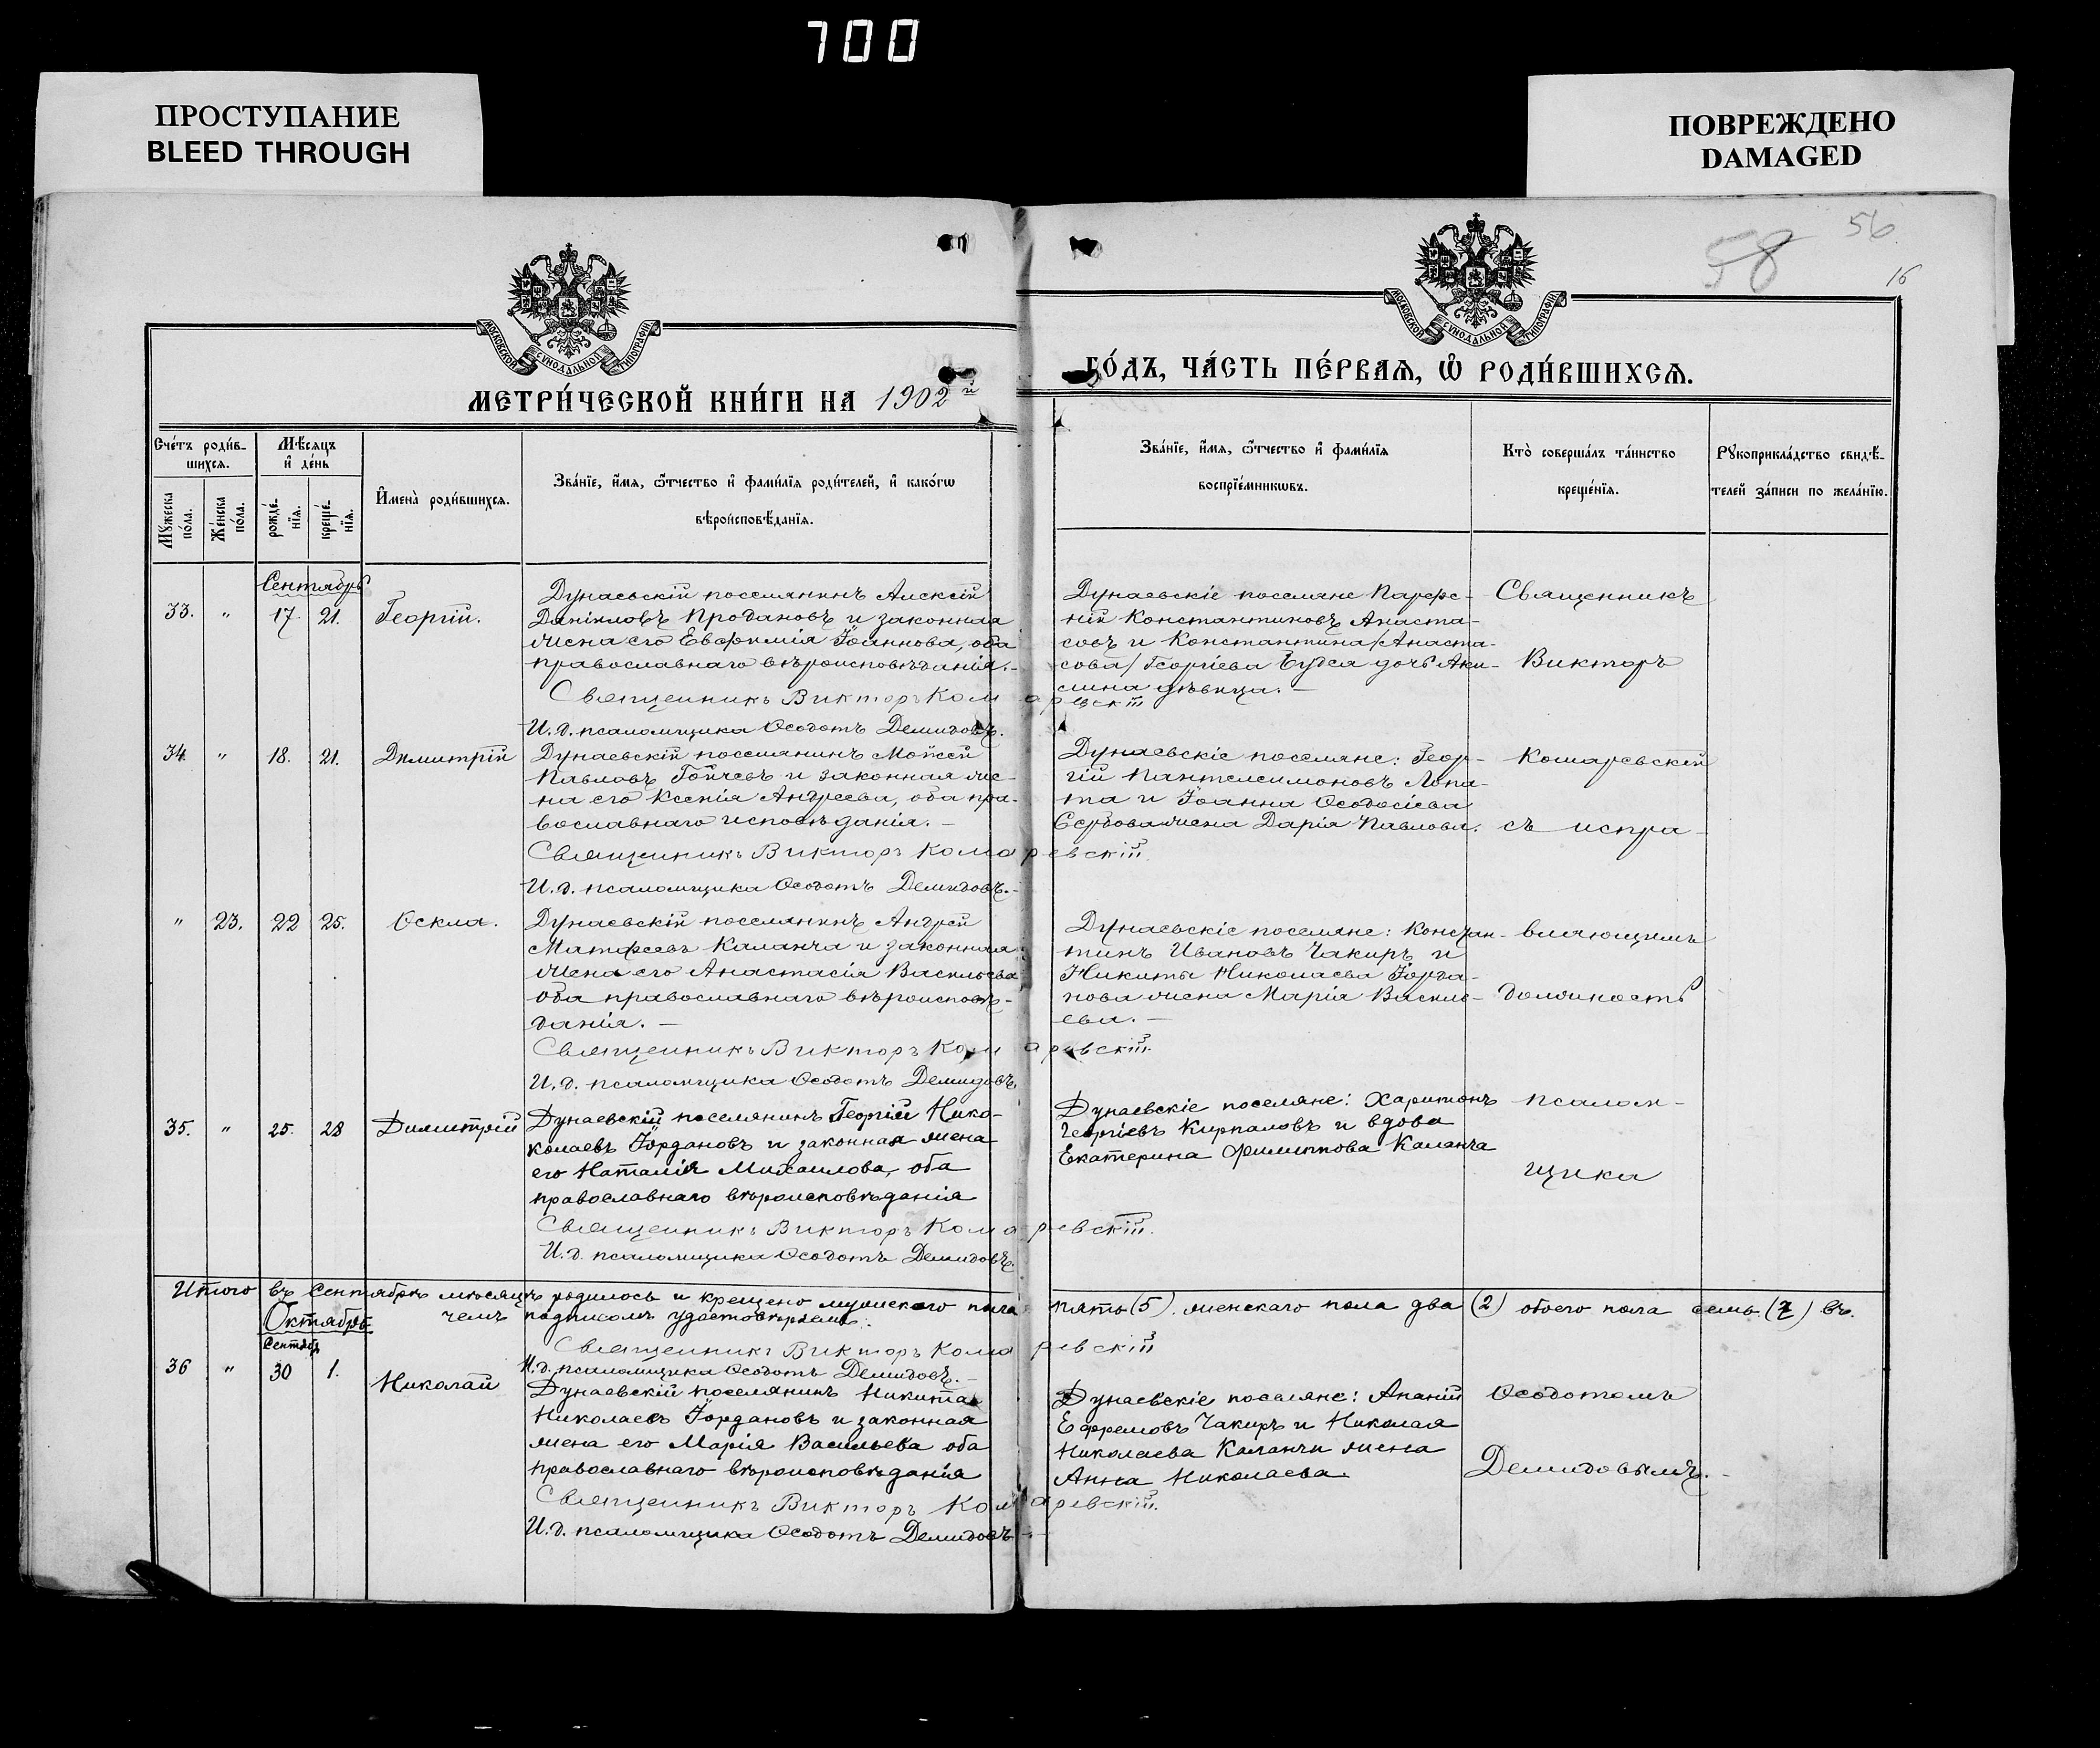 700
ПРОСТУПАНИЕ
BLEED THROUGH
ПОВРЕЖДЕНО
DAMAGED
58
56
16
МОСКОВСКОЙ СѴНОДАЛЬНОЙ ТИПОГРАФІИ
МОСКОВСКОЙ СѴНОДАЛЬНОЙ ТИПОГРАФІИ
МЕТРИ́ЧЕСКОЙ КНИ́ГИ НА 1902 й
ГО́ДЪ, ЧА́СТЬ ПЕ́РВАѦ, Ѡ РОДИ́ВШИХСѦ.
Сче́тъ роди́в-
шихсѧ.
Мѣ́сѧцъ
и де́нь
Мꙋ́жеска
по́ла.
Же́нска
по́ла.
рожде́-
нїѧ.
креще́-
нїѧ.
Имена̀ роди́вшихсѧ.
Зва́нїе, и́мѧ, ѻ́тчество и фами́лїѧ роди́телей, и како́гѡ
вѣроисповѣ́данїѧ.
Зва́нїе, и́мѧ, ѻ́тчество и фами́лїѧ
воспрїе́мникѡвъ.
Кто̀ соверша́лъ та́инство
креще́нїѧ.
Рꙋкоприкла́дство свидѣ́-
телей за́писи по жела́нїю.
Сентябрь
33. " 17. 21. Георгій.
Дунаевскій поселянинъ Алексій
Даніиловъ Продановъ и законная
жена его Евфимія Іоаннова, оба
православнаго вѣроисповѣданія.-
Священникъ Викторъ Комаревскій
И. д. псаломщика Ѳеодотъ Демидовъ.
Дунаевскіе поселяне Парфе-
ній Константиновъ Анаста-
совъ и Константина/Анаста-
сова/Георгіева дочь Аки-
лина дѣвица.-
34. " 18. 21. Димитрій
Дунаевскій поселянинъ Моѵсей
Павловъ Гойчевъ и законная же-
на его Ксенія Андреева, оба пра-
вославнаго исповѣданія.-
Священникъ Викторъ Комаревскій
И. д. псаломщика Ѳеодотъ Демидовъ.-
Дунаевскіе поселяне: Геор-
гій Пантелеимоновъ Лопа-
та и Іоанна Ѳеодосіева
Сербова жена Дарія Павлова.
" 23. 22 25. Ѳекла.
Дунаевскій поселянинъ Андрей
Матфеевъ Каланча и законная
жена его Анастасія Васильева
оба православнаго вѣроисповѣ-
данія.-
Священникъ Викторъ Комаревскій.
И. д. псаломщика Ѳеодотъ Демидовъ.
Дунаевскіе поселяне: Констан-
тинъ Ивановъ Чакиръ и
Никиты Николаева Іорда-
нова жена Марія Василь-
ева.-
35. " 25. 28 Димитрій
Дунаевскій поселянинъ Георгій Нико-
колаевъ Іордановъ и законная жена
его Наталія Михаилова, оба
православнаго вѣроисповѣданія
Священникъ Викторъ Комаревскій.
И. д. псаломщика Ѳеодотъ Демидовъ.
Дунаевскіе поселяне: Харитонъ
Георгіевъ Кирпаловъ и вдова
Екатерина Филиппова Каланча
Итого въ Сентябрѣ мѣсяцѣ родилось и крещено мужскаго пола пять (5). женскаго пола два (2) обоего пола семь (7) въ
чемъ подписомъ удостовѣряемъ:
Священникъ Викторъ Комаревскій
И. д. псаломщика Ѳеодотъ Демидовъ.-
Октябрь
Сентябр
36 " 30 1. Николай
Дунаевскій поселянинъ Никита
Николаевъ Іордановъ и законная
жена его Марія Васильева оба
православнаго вѣроисповѣданія
Священникъ Викторъ Комаревскій.
И. д. псаломщика Ѳеодотъ Демидовъ.-
Дунаевскіе поселяне: Ананій
Ефремовъ Чакиръ и Николая
Николаева Каланчи жена
Анна Николаева.
Священникъ
Викторъ
Комаревскій
съ испра-
вляющимъ
должность
псалом-
щика
Ѳеодотомъ
Демидовымъ.-